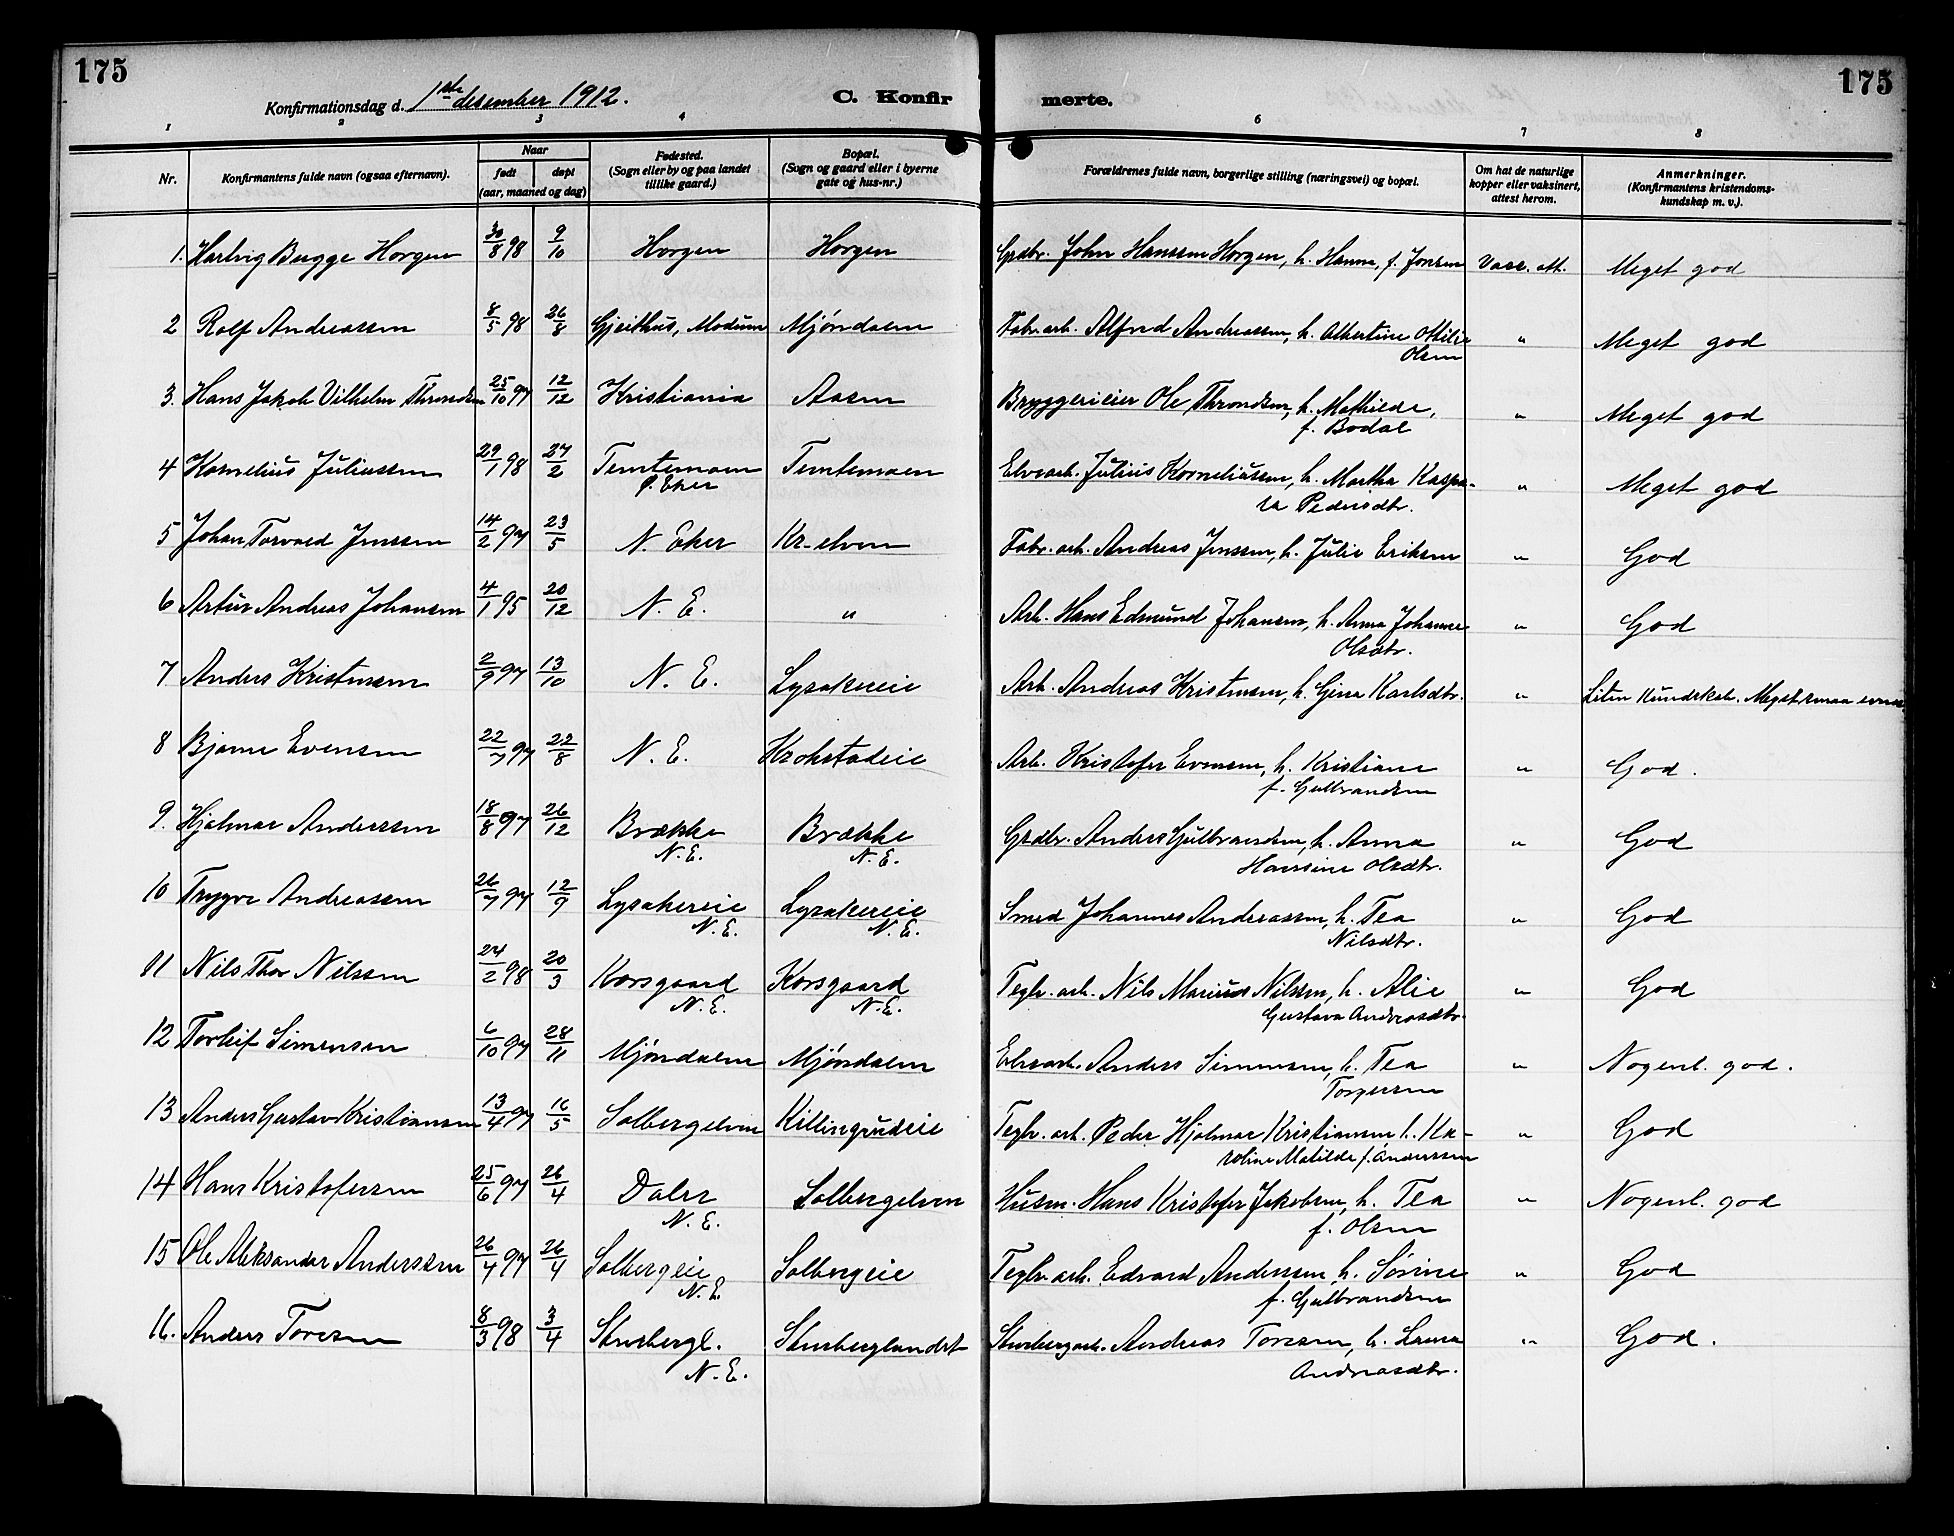 175
175
Konfirmationsdag d. 1ste desember 1912.
C. Konfirmerte.
1 2 3 4 6 7 8
Nr.
Konfirmantens fulde navn (ogsaa efternavn).
Naar
født
døpt
(aar, maaned og dag)
Fødested.
(Sogn eller by og paa landet
tillike gaard.)
Bopæl.
(Sogn og gaard eller i byerne
gate og hus-nr.)
Forældrenes fulde navn, borgerlige stilling (næringsvei) og bopæl.
Om hat de naturlige
kopper eller vaksinert,
attest herom.
Anmerkninger.
(Konfirmantens kristendoms-
kundskap m. v.).
1. Hartvig Bugge Horgen 30/8 98 9/10 Horgen Horgen Grdbr. John Hanssen Horgen, h. Hanna, f. Jonsen Vacc. att. Meget god
2 Rolf Andreassen 8/5 98 26/8 Gjeithus, Modum Mjøndalen Fabr.arb. Alfred Andreassen, h. Albertine Otilie " Meget god
Olsen
3. Hans Jakob Vilhelm Throndsen 25/10 97 12/12 Kristiania Aasen Bryggerieier Ole Throndsen, h. Mathilde, " Meget god
f. Bodal
4 Kornelius Juliussen 29/1 98 27/2 Temtemoen Temtemoen Elvearb. Julius Korneliussen, h. Martha Kaspa- " Meget god
Ø. Eker
ra Pedersdtr.
5 Johan Torvald Jenssen 14/2 97 23/5 N. Eker Kr-elven Fabr. arb. Andreas Jenssen, h. Julie Eriksen " God
6 Artur Andreas Johansen 4/1 95 20/12 N. E. " Arb. Hans Edmund Johansen, h. Anna Johanne " God
Olsdtr.
7 Anders Kristensen 2/9 97 13/10 N. E. Lysakereie Arb. Andreas Kristensen, h. Gina Karlsdtr. " Liten kundskab. Meget smaa evner
8 Bjarne Evensen 22/7 97 22/8 N. E. Krokstadeie Arb. Kristofer Evensen, h. Kristiane " God.
f. Gulbrandsen
9. Hjalmar Anderssen 18/8 97 26/12 Brække Brække Grdbr. Anders Gulbrandsen, h. Anna " God
N.E. N.E.
Hansine Olsdtr.
10 Trygve Andreassen 26/7 97 12/9 Lysakereie Lysakereie Smed Johannes Andreassen, h. Tea " God
N.E. N.E.
Nilsdtr.
11 Nils Thor Nilssen 24/2 98 20/3 Korsgaard Korsgaard Teglv. arb. Nils Marius Nilssen, h. Alie " God
N.E. N.E.
Gustava Andreasdtr.
12 Torleif Simensen 6/10 97 28/11 Mjøndalen Mjøndalen Elvearb. Anders Simensen, h. Tea " Nogenl. god.
Torgersen
13 Anders Gustav Kristiansen 13/4 97 16/5 Solbergelven Killingrudeie Teglv. arb. Peder Hjalmar Kristiansen, h. Ka- " God
roline Matilde f. Anderssen
14 Hans Kristofersen 25/6 97 26/4 Daler Solbergelven Husm. Hans Kristofer Jakobsen, h. Tea " Nogenl. god
N.E.
f. Olsen
15 Ole Aleksander Anderssen 26/4 97 26/4 Solbergeie Solbergeie Teglv. arb. Edvard Anderssen h. Sørine " God
N.E.
f. Gulbrandsen
16. Anders Toresen 8/3 98 3/4 Stenbergl. Stenberglandet Stenbergarb. Andreas Toresen, h. Laura " God.
N.E.
Andreasdtr.